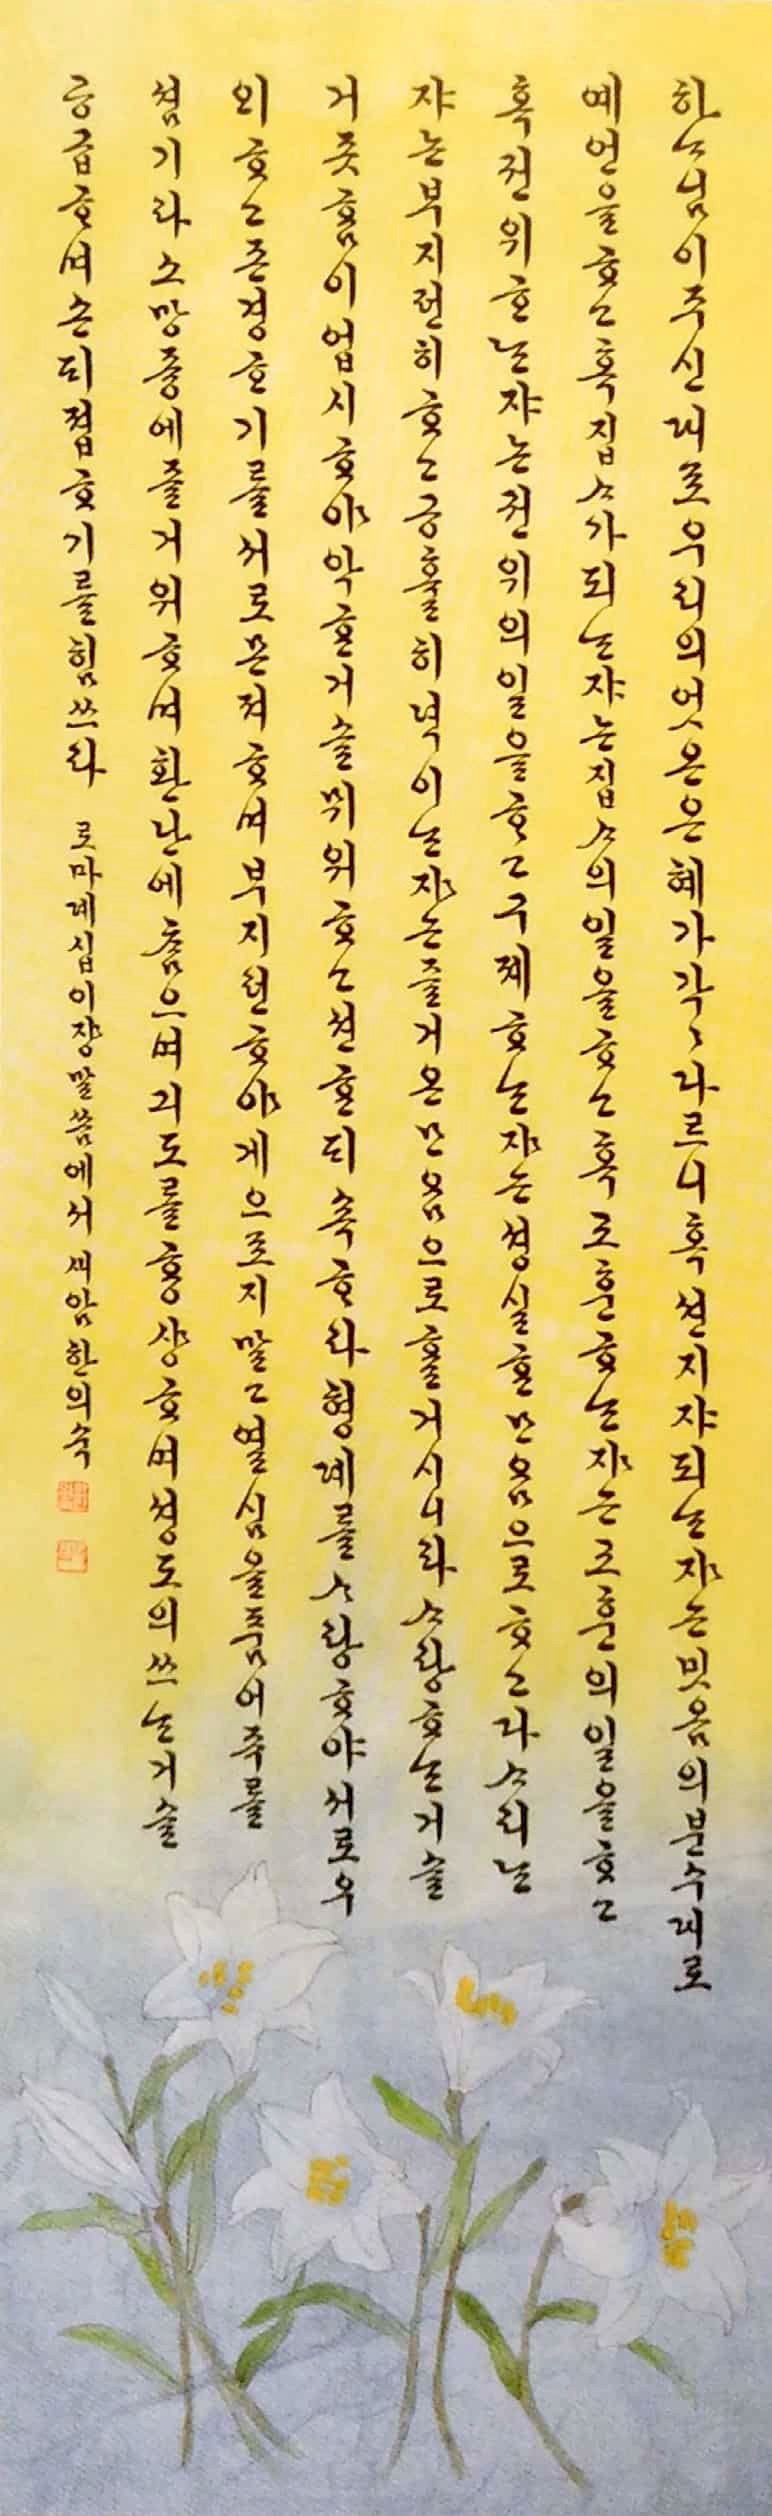 하ᄂᆞ님이주신대로우리의엇은은혜가각〻다르니혹션지쟈되ᄂᆞᆫ쟈ᄂᆞᆫ밋음의분수대로
예언을ᄒᆞ고혹집ᄉᆞ가되ᄂᆞᆫ쟈ᄂᆞᆫ집ᄉᆞ의일을ᄒᆞ고혹교훈ᄒᆞᄂᆞᆫ쟈ᄂᆞᆫ교훈의일을ᄒᆞ고
혹권위ᄒᆞᄂᆞᆫ쟈ᄂᆞᆫ권위의일을ᄒᆞ고구졔ᄒᆞᄂᆞᆫ쟈ᄂᆞᆫ셩실ᄒᆞᆫᄆᆞᄋᆞᆷ으로ᄒᆞ고다ᄉᆞ리ᄂᆞᆫ
쟈ᄂᆞᆫ부지런히ᄒᆞ고긍휼히녁이ᄂᆞᆫ쟈ᄂᆞᆫ즐거온ᄆᆞᄋᆞᆷ으로ᄒᆞᆯ거시니라ᄉᆞ랑ᄒᆞᄂᆞᆫ거슬
거즛ᄒᆞᆷ이업시ᄒᆞ야악ᄒᆞᆫ거슬뮈워ᄒᆞ고션ᄒᆞᆫᄃᆡ속ᄒᆞ라형뎨를ᄉᆞ랑ᄒᆞ야서로우
외ᄒᆞ고존경ᄒᆞ기를서로몬져ᄒᆞ며부지런ᄒᆞ야게으르지말고열심을품어쥬를
셤기라소망즁에즐거워ᄒᆞ며환난에ᄎᆞᆷ으며긔도를ᄒᆞᆼ샹ᄒᆞ며셩도의쓰ᄂᆞᆫ거슬
공급ᄒᆞ며손ᄃᆡ졉ᄒᆞ기를힘쓰라 로마뎨십이쟝말씀에서 한의숙